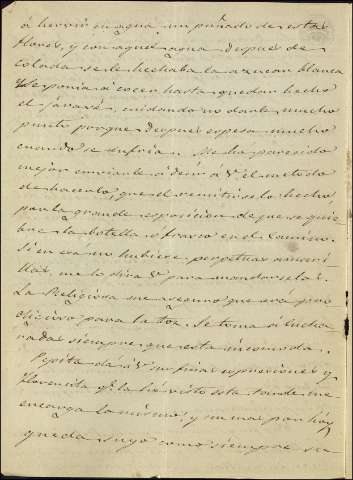 á hervir en agua un puñado de estas
flores, y con aquel agua despues de
colada se le hechaba la azucar blanca
y se ponia á cocer hasta quedar hecho
el jaravé, cuidando no darle mucho
punto porque despues espesa mucho
cuando se enfria. Me ha parecido
mejor enviarle á decir á V. el metodo
de hacerlo, que el remitirselo hecho,
por la grande esposicion de que se quie-
bre la botella ó frasco en el camino.
Si en esa no hubiere perpetuas amari-
llas, me lo dira V. para mandarselas.
La Religiosa me aseguró que era pro-
digioso para la tos. Se toma á cucha-
radas siempre que esta incomoda.
Pepita dá á V. sus finas espresiones y
Florencita qe. la he visto esta tarde me
encarga lo mismo; y no mas por hoy
queda suyo como siempre su